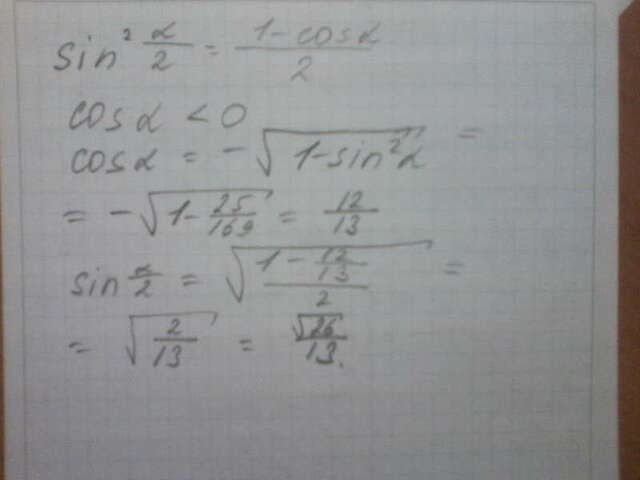 sin² α/2 = (1-cosα)/2
cosα < 0
cosα = -√(1-sin²α) =
= -√(1-25/169) = 12/13
sin α/2 = √((1-12/13)/2) =
= √(2/13) = √26/13.